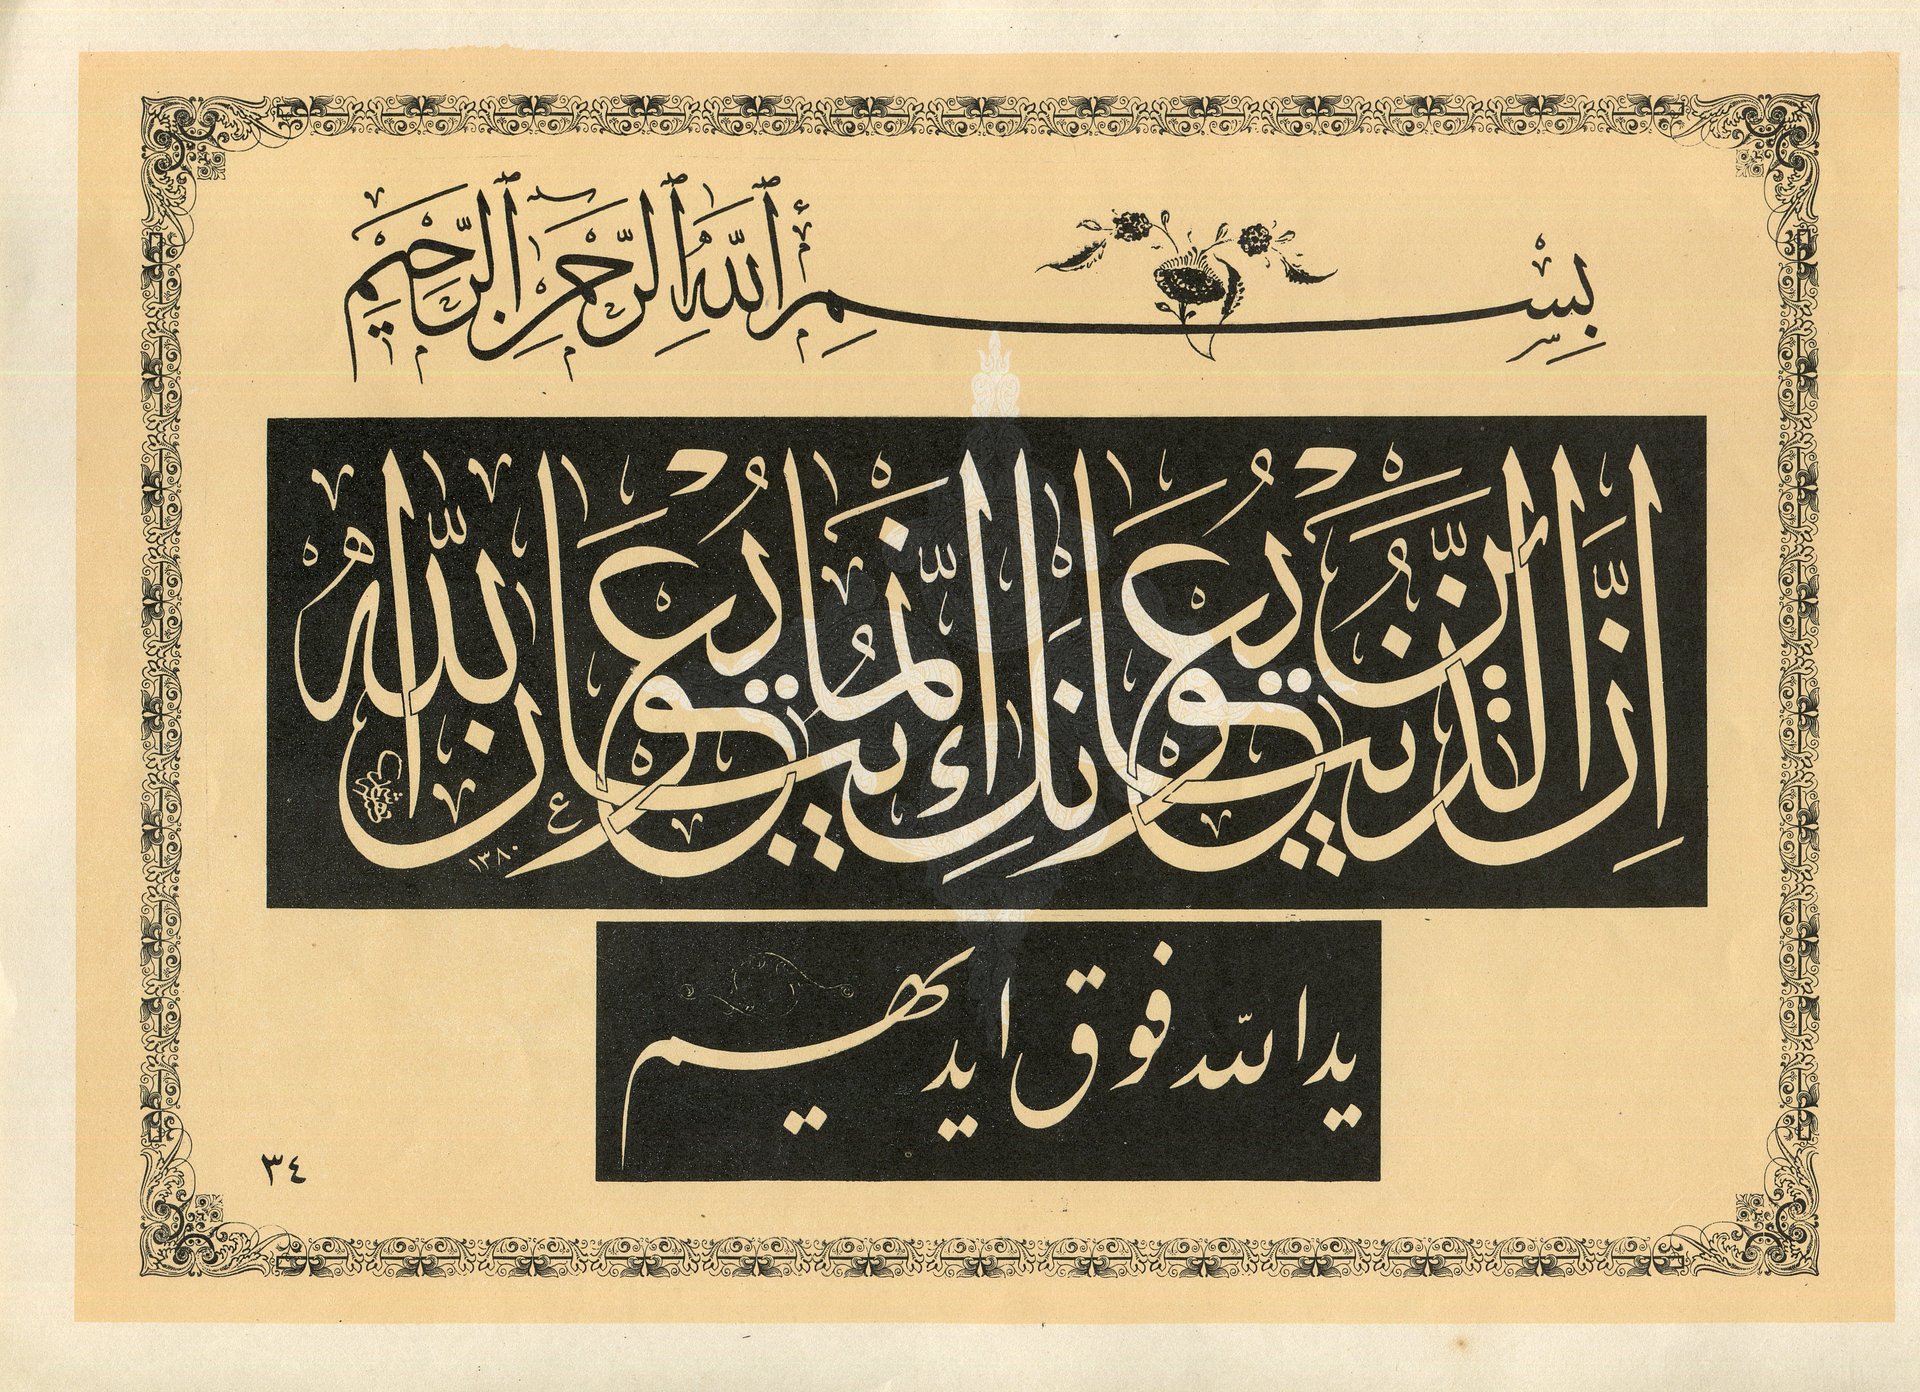 بِسْمِ ٱللَّهِ ٱلرَّحْمَٰنِ ٱلرَّحِيمِ
إِنَّ الَّذِينَ يُبَايِعُونَكَ إِنَّمَا يُبَايِعُونَ اللَّهَ
١٣٨٠
يد الله فوق ايديهم
٣٤